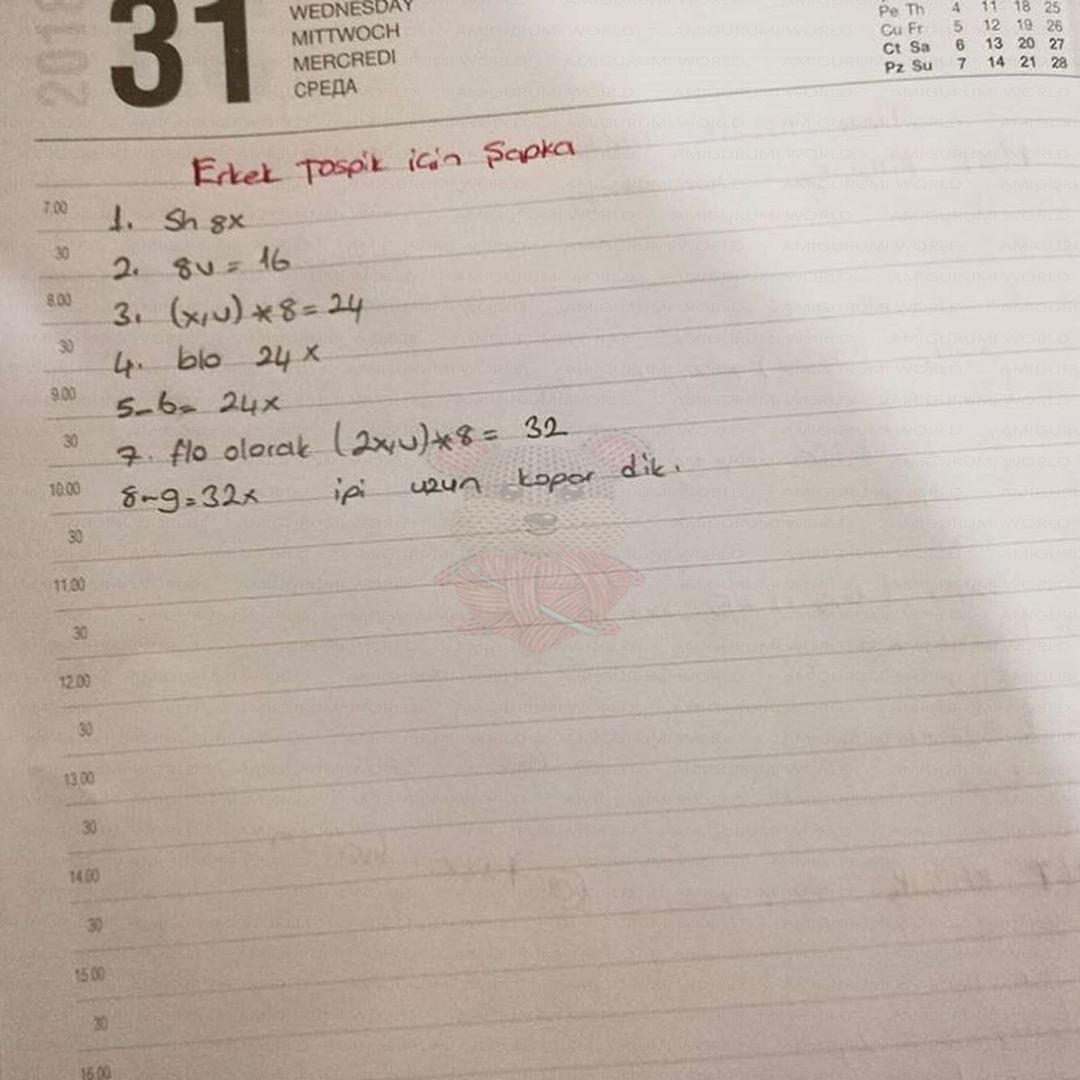 2018
31
WEDNESDAY
MITTWOCH
MERCREDI
СРЕДА
Pe Th 4 11 18 25
Cu Fr 5 12 19 26
Ct Sa 6 13 20 27
Pz Su 7 14 21 28
Erkek Tospik için Şapka
7.00 1. Sh 8x
30 2. 8v = 16
8.00 3. (x,v)*8=24
30 4. blo 24x
9.00 5-6= 24x
30 7. flo olarak (2x,v)*8= 32
10.00 8-9=32x ipi uzun kopar dik.
30
11.00
30
12.00
30
13.00
30
14.00
30
15.00
30
16.00
AMIGURUMI WORLD